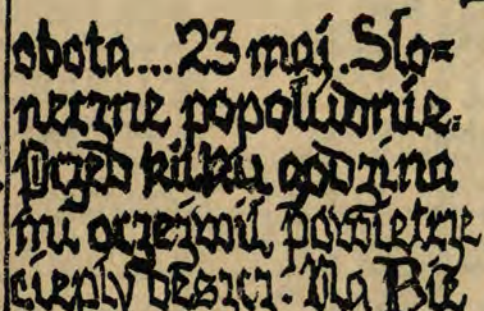 obota... 23 maj. Sło=
neczne popołudnie.
Przed kilku godzina
mi orzeźwił powietrze
ciepły deszcz. Na Bie